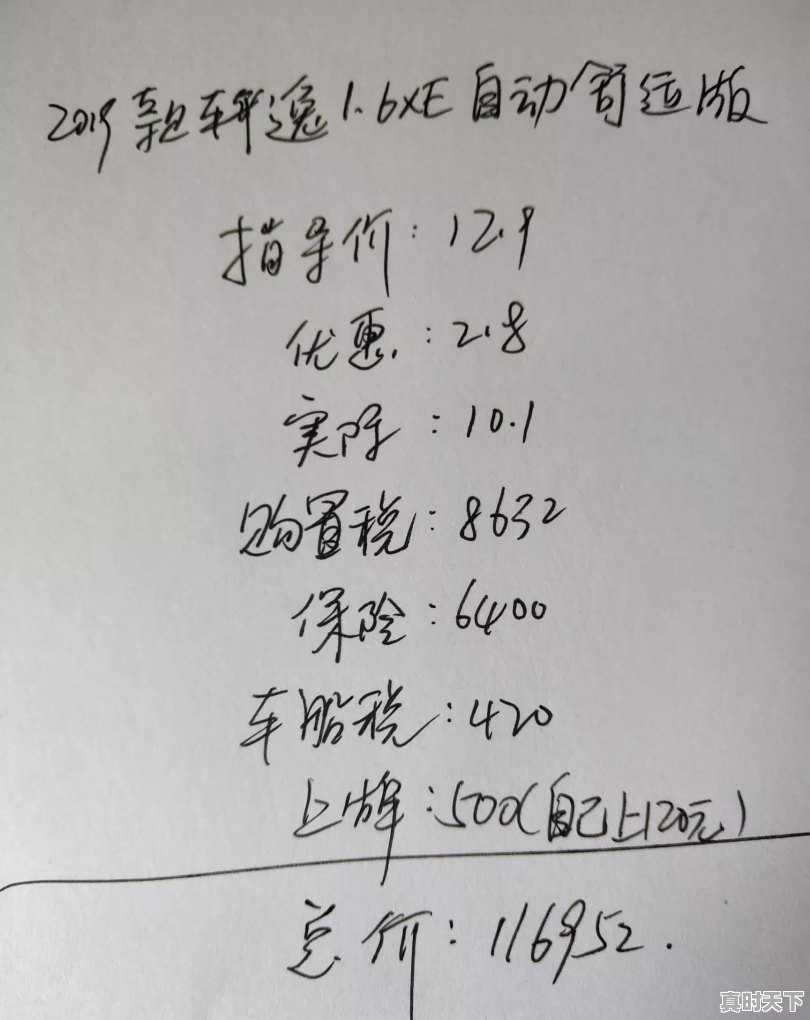 2019款轩逸1.6XE自动舒适版
指导价：12.9
优惠：2.8
实际：10.1
购置税：8632
保险：6400
车船税：420
上牌：500(自己上120元)
总价：116952.
真时天下